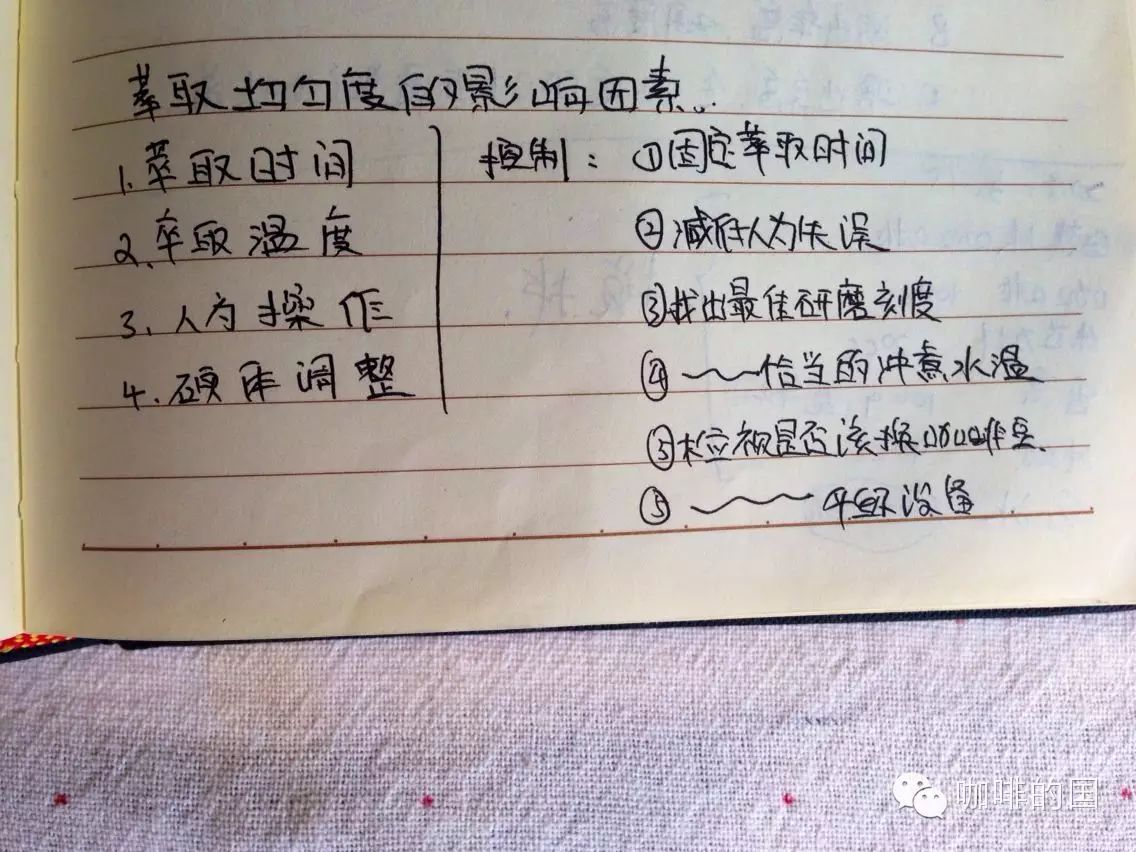 萃取均匀度的影响因素..
1.萃取时间
2.萃取温度
3.人为操作
4.硬体调整
控制：①固定萃取时间
②减低人为失误
③找出最佳研磨刻度
④～～恰当的冲煮水温
⑤检视是否该换咖啡豆.
⑤～～设备
咖啡的国